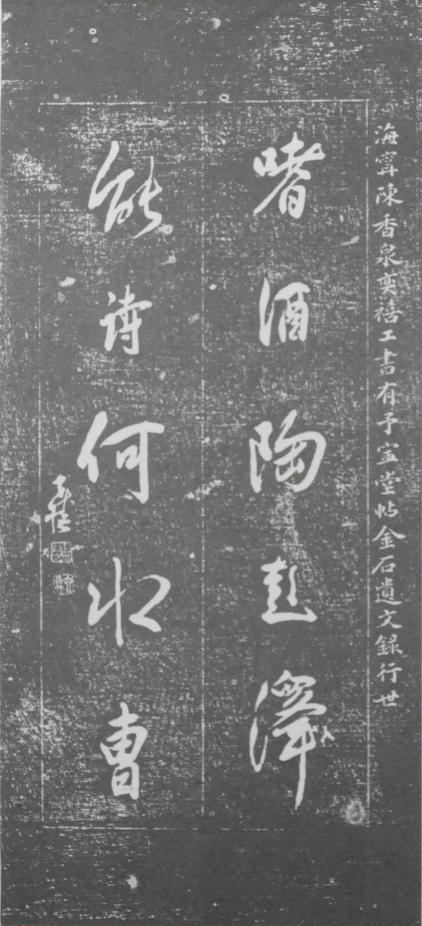 海寧陳香泉奕禧工書有予寧堂帖金石遺文錄行世
嗜酒陶彭澤
能詩何水曹